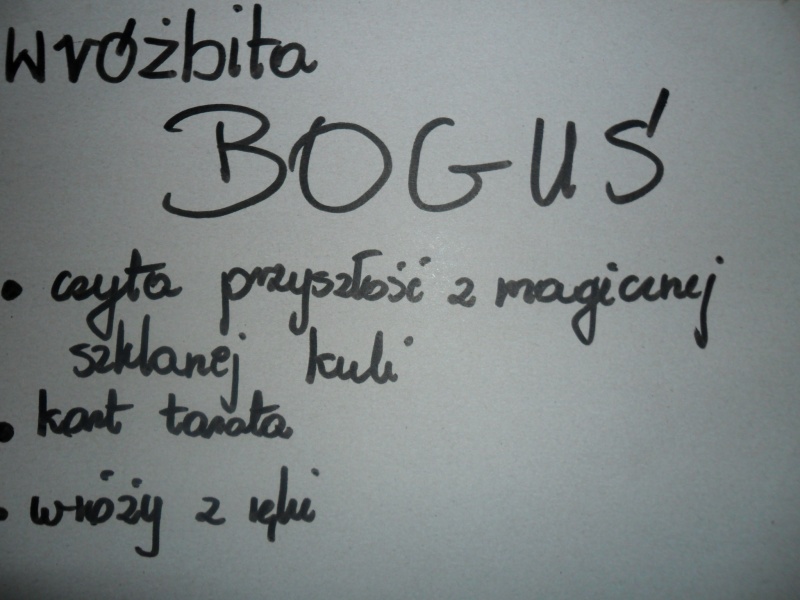 wróżbita
BOGUŚ
• czyta przyszłość z magicznej
szklanej kuli
• kart tarota
• wróży z ręki